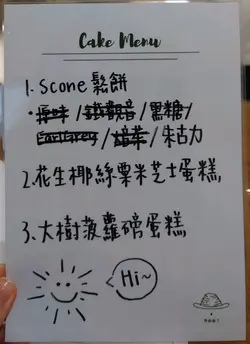 Cake Menu
1. Scone 鬆餅
• 原味/鐵觀音/黑糖/
Earl Grey/焙茶/朱古力
2. 花生椰絲粟米芝士蛋糕,
3. 大樹菠蘿磅蛋糕
Hi~